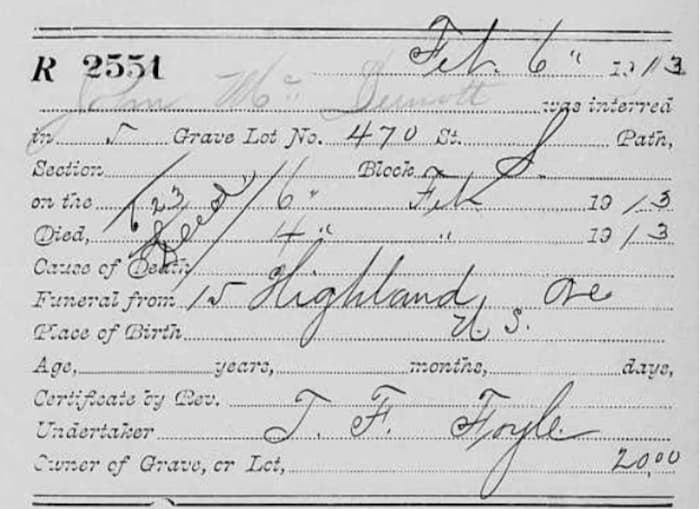 R 2551 Feb. 6" 1913
John Mc Dermott was interred
in 5 Grave Lot No. 470 St. Path,
Section Block S.
on the 6" Feb 1913
Died, 4" " 1913
Cause of Death
Funeral from 15 Highland Ave
Place of Birth U S.
Age, years, months, days,
Certificate by Rev.
Undertaker T. F. Foyle
Owner of Grave, or Lot, 20.00